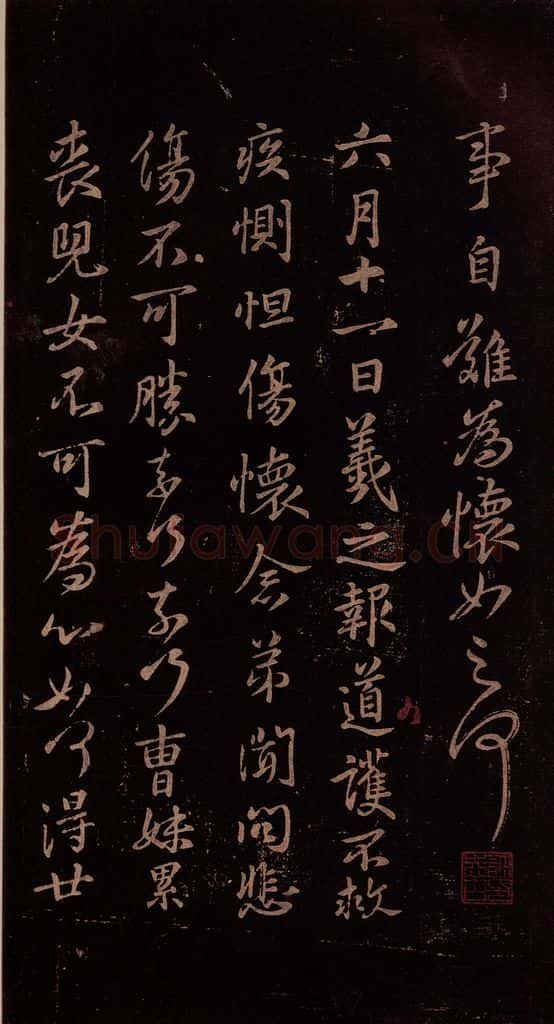 事自難為懷如之何
六月十一日羲之報道護不救
疾惻怛傷懷念弟聞問悲
傷不可勝奈何奈何曹妹累
喪兒女不可為心如何得廿
shufawang.cn